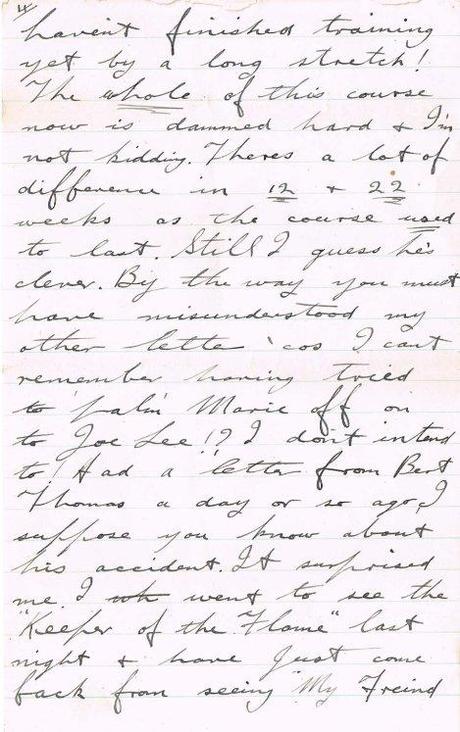 4/
haven't finished training
yet by a long stretch!
The whole of this course
now is dammed hard & I'm
not kidding. Theres a lot of
difference in 12 & 22
weeks as the course used
to last. Still I guess he's
clever. By the way you must
have misunderstood my
other letter 'cos I can't
remember having tried
to 'palm' Marie off on
to Joe Lee!? I don't intend
to! Had a letter from Bert
Thomas a day or so ago, I
suppose you know about
his accident. It surprised
me. I wh went to see the
"Keeper of the Flame" last
night & have just come
back from seeing "My Freind